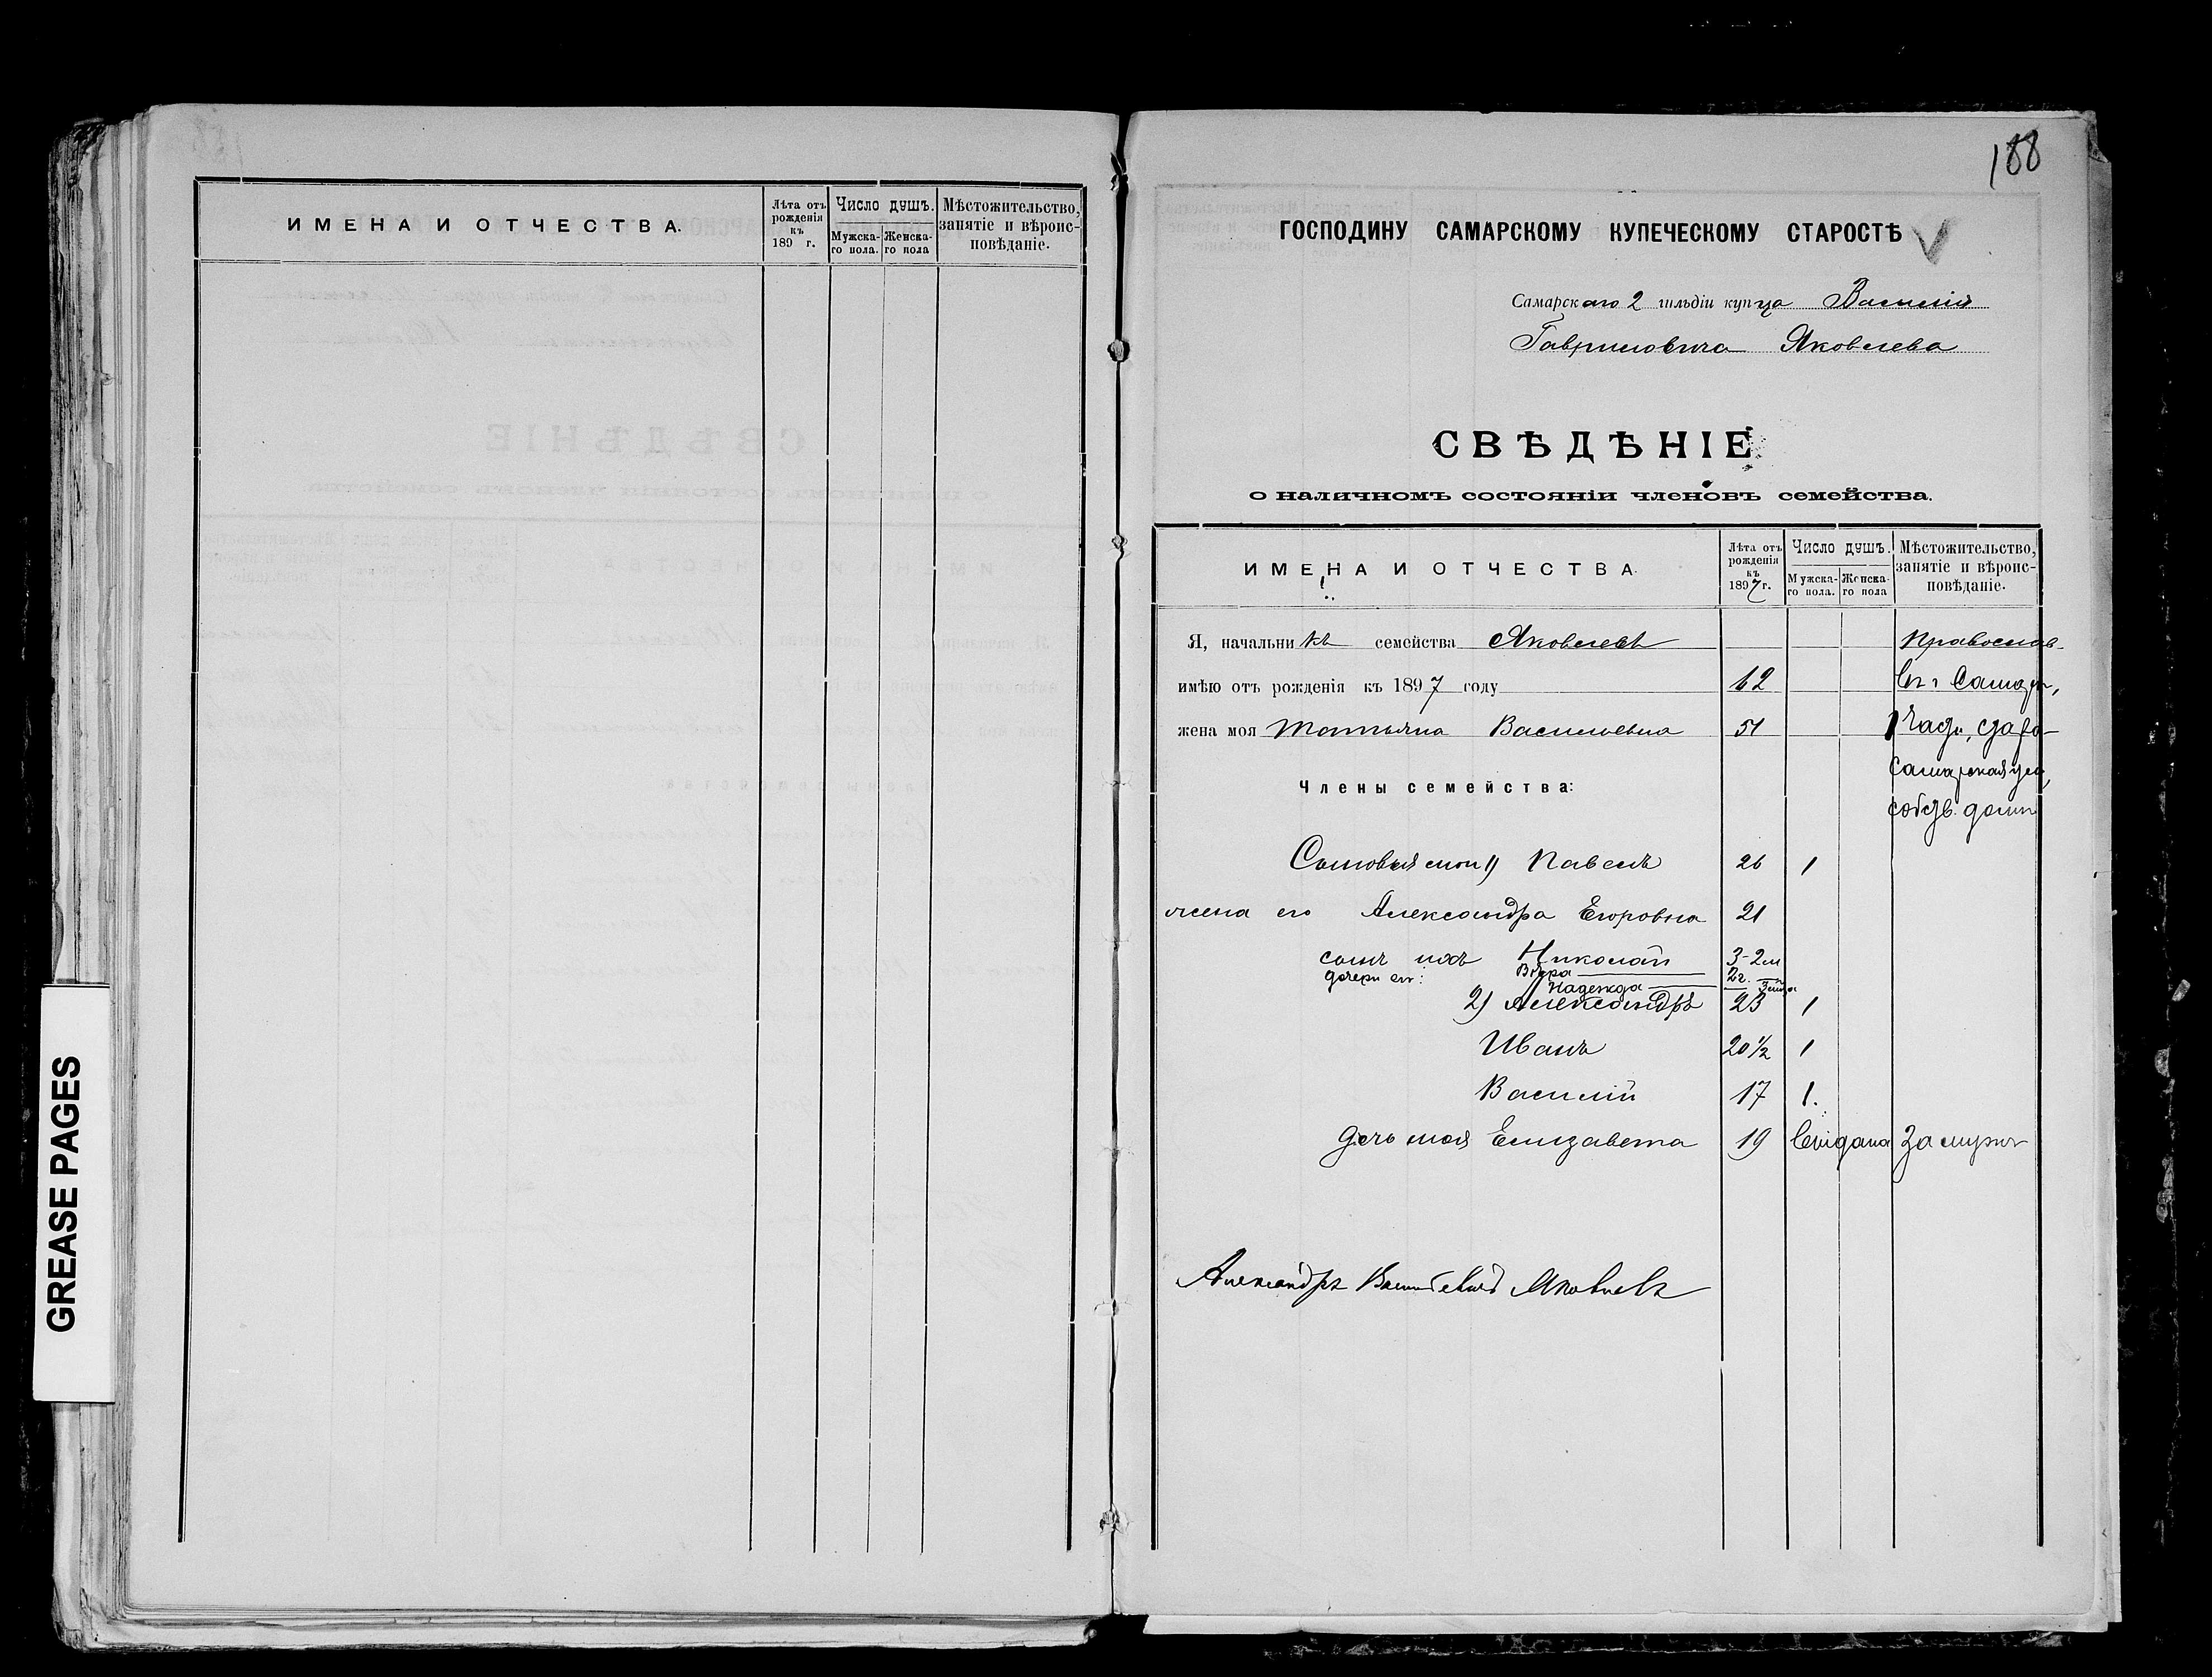 ИМЕНА И ОТЧЕСТВА.
Лѣта отъ рожденія къ 189 г.
Число душъ.
Мужска-го пола.
Женска-го пола
Мѣстожительство, занятіе и вѣроис-повѣданіе.
GREASE PAGES
188
ГОСПОДИНУ САМАРСКОМУ КУПЕЧЕСКОМУ СТАРОСТѢ
Самарскаго 2 гильдіи купца Василія
Гавриловича Яковлева
СВѢДѢНІЕ
о наличномъ состояніи членовъ семейства.
ИМЕНА И ОТЧЕСТВА
Лѣта отъ рожденія къ 1897 г.
Число душъ.
Мужска-го пола.
Женска-го пола
Мѣстожительство, занятіе и вѣроис-повѣданіе.
Я, начальникъ семейства Яковлевъ Православ.
имѣю отъ рожденія къ 1897 году 62
жена моя Татьяна Васильевна 51
Самарская ул,
Члены семейства:
собств. домъ
Сыновья мои 1) Павелъ 26 1
жена его Александра Егоровна 21
сынъ ихъ Николай 3-2м
дочери его: Вѣра 2г.
Надежда
2) Александръ 23 1
Иванъ 20½ 1
Василій 17 1.
дочь моя Елизавета 19 Выдана замужъ
Александръ Васильевичъ Яковлевъ